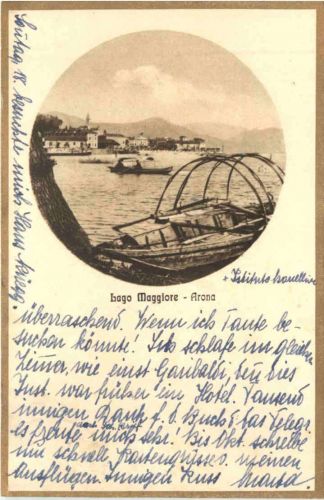 Sonntag 18. besuchte mich Hans Kriegg
Lago Maggiore - Arona
+ Istituto
überraschend. Wenn ich Tante be-
suchen könnte! Ich schlafe im gleichen
Zimer, wie einst Garibaldi, den dies
Inst. war früher ein Hotel. Tausend
innigen Dank f. d. Buch & das Telegr.
es freute mich sehr! Bis Okt. schreibe
nur schnell Kartengrüsse v. meinen
Ausflügen. Innigen Kuss Marta.